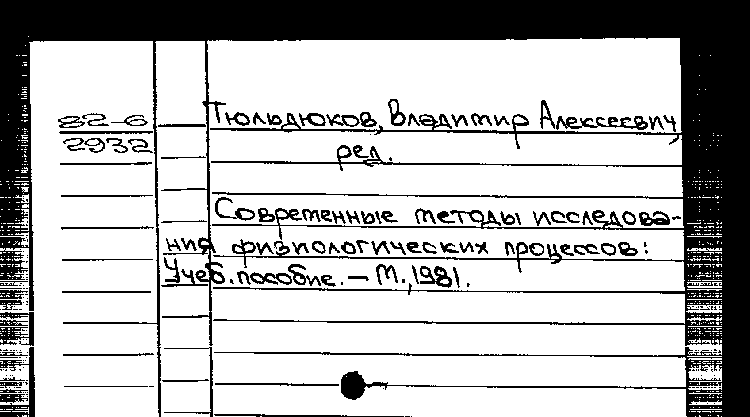 82-6
2932
Тюльдюков, Владимир Алексеевич,
ред.
Современные методы исследова-
ния физиологических процессов:
Учеб. пособие. — М., 1981.